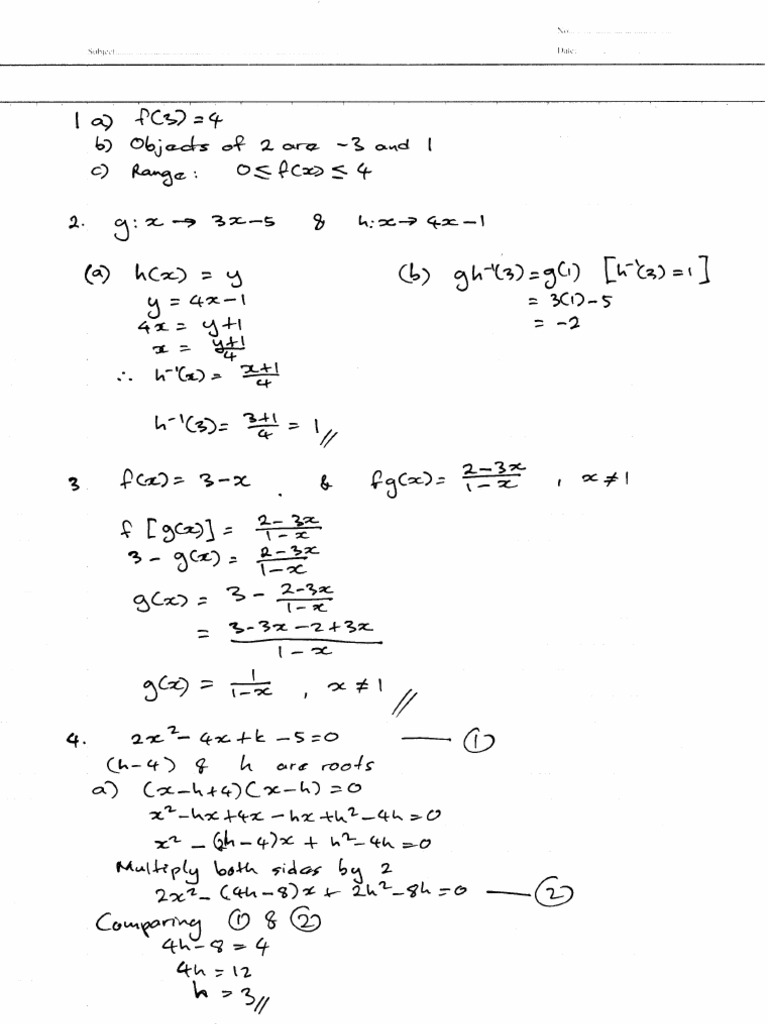 No.
Subject
Date:
1 a) f(3) = 4
b) Objects of 2 are -3 and 1
c) Range: 0 ≤ f(x) ≤ 4
2. g: x → 3x-5 & h: x → 4x-1
(a) h(x) = y
y = 4x-1
4x = y+1
x = y+1/4
∴ h⁻¹(x) = x+1/4
h⁻¹(3) = 3+1/4 = 1 //
(b) gh⁻¹(3) = g(1) [h⁻¹(3) = 1]
= 3(1) - 5
= -2
3 f(x) = 3-x & fg(x) = 2-3x/1-x , x ≠ 1
f [g(x)] = 2-3x/1-x
3 - g(x) = 2-3x/1-x
g(x) = 3 - 2-3x/1-x
= 3-3x-2+3x/1-x
g(x) = 1/1-x , x ≠ 1 //
4. 2x² - 4x + k - 5 = 0 — ①
(h-4) & h are roots
a) (x-h+4)(x-h) = 0
x² - hx + 4x - hx + h² - 4h = 0
x² - (2h-4)x + h² - 4h = 0
Multiply both sides by 2
2x² - (4h-8)x + 2h² - 8h = 0 — ②
Comparing ① & ②
4h - 8 = 4
4h = 12
h = 3 //